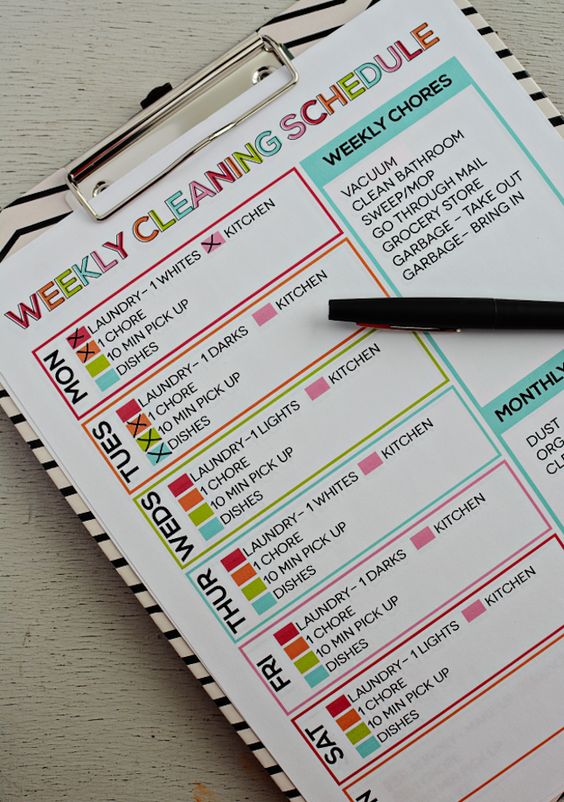 WEEKLY CLEANING SCHEDULE
MON
LAUNDRY- 1 WHITES
KITCHEN
1 CHORE
10 MIN PICK UP
DISHES
TUES
LAUNDRY- 1 DARKS
KITCHEN
1 CHORE
10 MIN PICK UP
DISHES
WEDS
LAUNDRY- 1 LIGHTS
KITCHEN
1 CHORE
10 MIN PICK UP
DISHES
THUR
LAUNDRY- 1 WHITES
KITCHEN
1 CHORE
10 MIN PICK UP
DISHES
FRI
LAUNDRY- 1 DARKS
KITCHEN
1 CHORE
10 MIN PICK UP
DISHES
SAT
LAUNDRY- 1 LIGHTS
KITCHEN
1 CHORE
10 MIN PICK UP
DISHES
WEEKLY CHORES
VACUUM
CLEAN BATHROOM
SWEEP/MOP
GO THROUGH MAIL
GROCERY STORE
GARBAGE - TAKE OUT
GARBAGE - BRING IN
MONTHLY
DUST